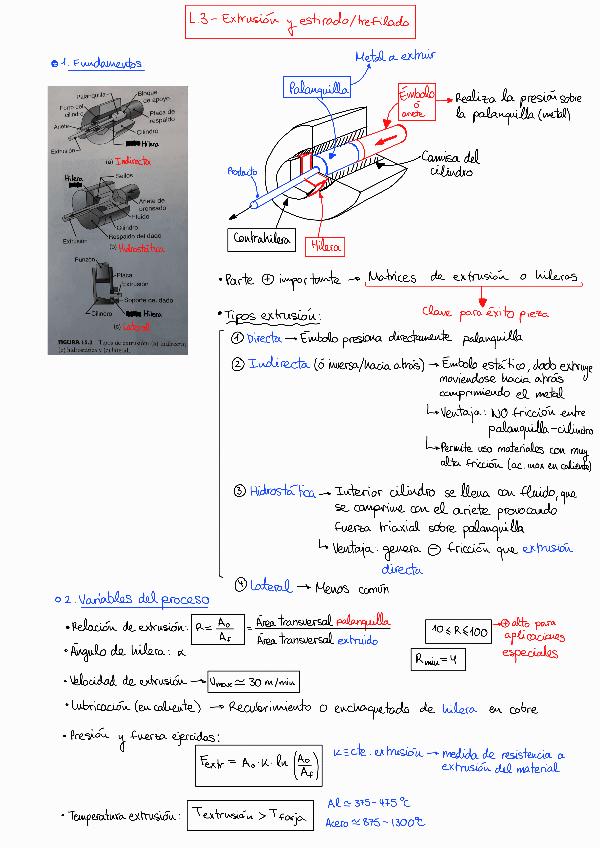 L.3 - Extrusión y estirado/trefilado
1. Fundamentos
Metal a extruir
Palanquilla
Émbolo
ó
ariete
→ Realiza la presión sobre
la palanquilla (metal)
Camisa del
cilindro
Contrahilera
Hilera
Palanquilla
Bloque
de apoyo
Forro del
cilindro
Placa de
respaldo
Ariete
Cilindro
Hilera
Extrusión
(a) Indirecta
Hilera
Sellos
Ariete de
Fluido
Cilindro
Respaldo del dado
Extrusión
(b) Hidrostática
Punzón
Placa
Extrusión
Soporte del dado
Cilindro
Hilera
(c) Lateral
FIGURA 15.3 Tipos de extrusión: (a) indirecta;
(b) hidrostática y (c) lateral.
• Parte ⊕ importante → Matrices de extrusión o hileras
Clave para éxito pieza
• Tipos extrusión:
① Directa → Émbolo presiona directamente palanquilla
② Indirecta (ó inversa/hacia atrás) → Émbolo estático, dado extruye
moviendose hacia atrás
comprimiendo el metal
↳ Ventaja: NO fricción entre
palanquilla-cilindro
↳ Permite uso materiales con muy
alta fricción (ac. inox en caliente)
③ Hidrostática → Interior cilindro se llena con fluido, que
se comprime con el ariete provocando
fuerza triaxial sobre palanquilla
↳ Ventaja: genera ⊖ fricción que extrusión
directa
④ Lateral → Menos común
2. Variables del proceso
• Relación de extrusión: R = A₀/A_f = Área transversal palanquilla / Área transversal extruido
10 ≤ R ≤ 100 → ⊕ alto para
aplicaciones
especiales
R_min = 4
• Ángulo de hilera: α
• Velocidad de extrusión → v_max ≃ 30 m/min
• Lubricación (en caliente) → Recubrimiento o enchaquetado de hilera en cobre
• Presión y fuerza ejercidas:
F_extr = A₀·K·ln (A₀/A_f)
K ≡ cte. extrusión → medida de resistencia a
extrusión del material
• Temperatura extrusión: T extrusión > T forja
Al ≃ 375-475 ºC
Acero ≃ 875-1300ºC